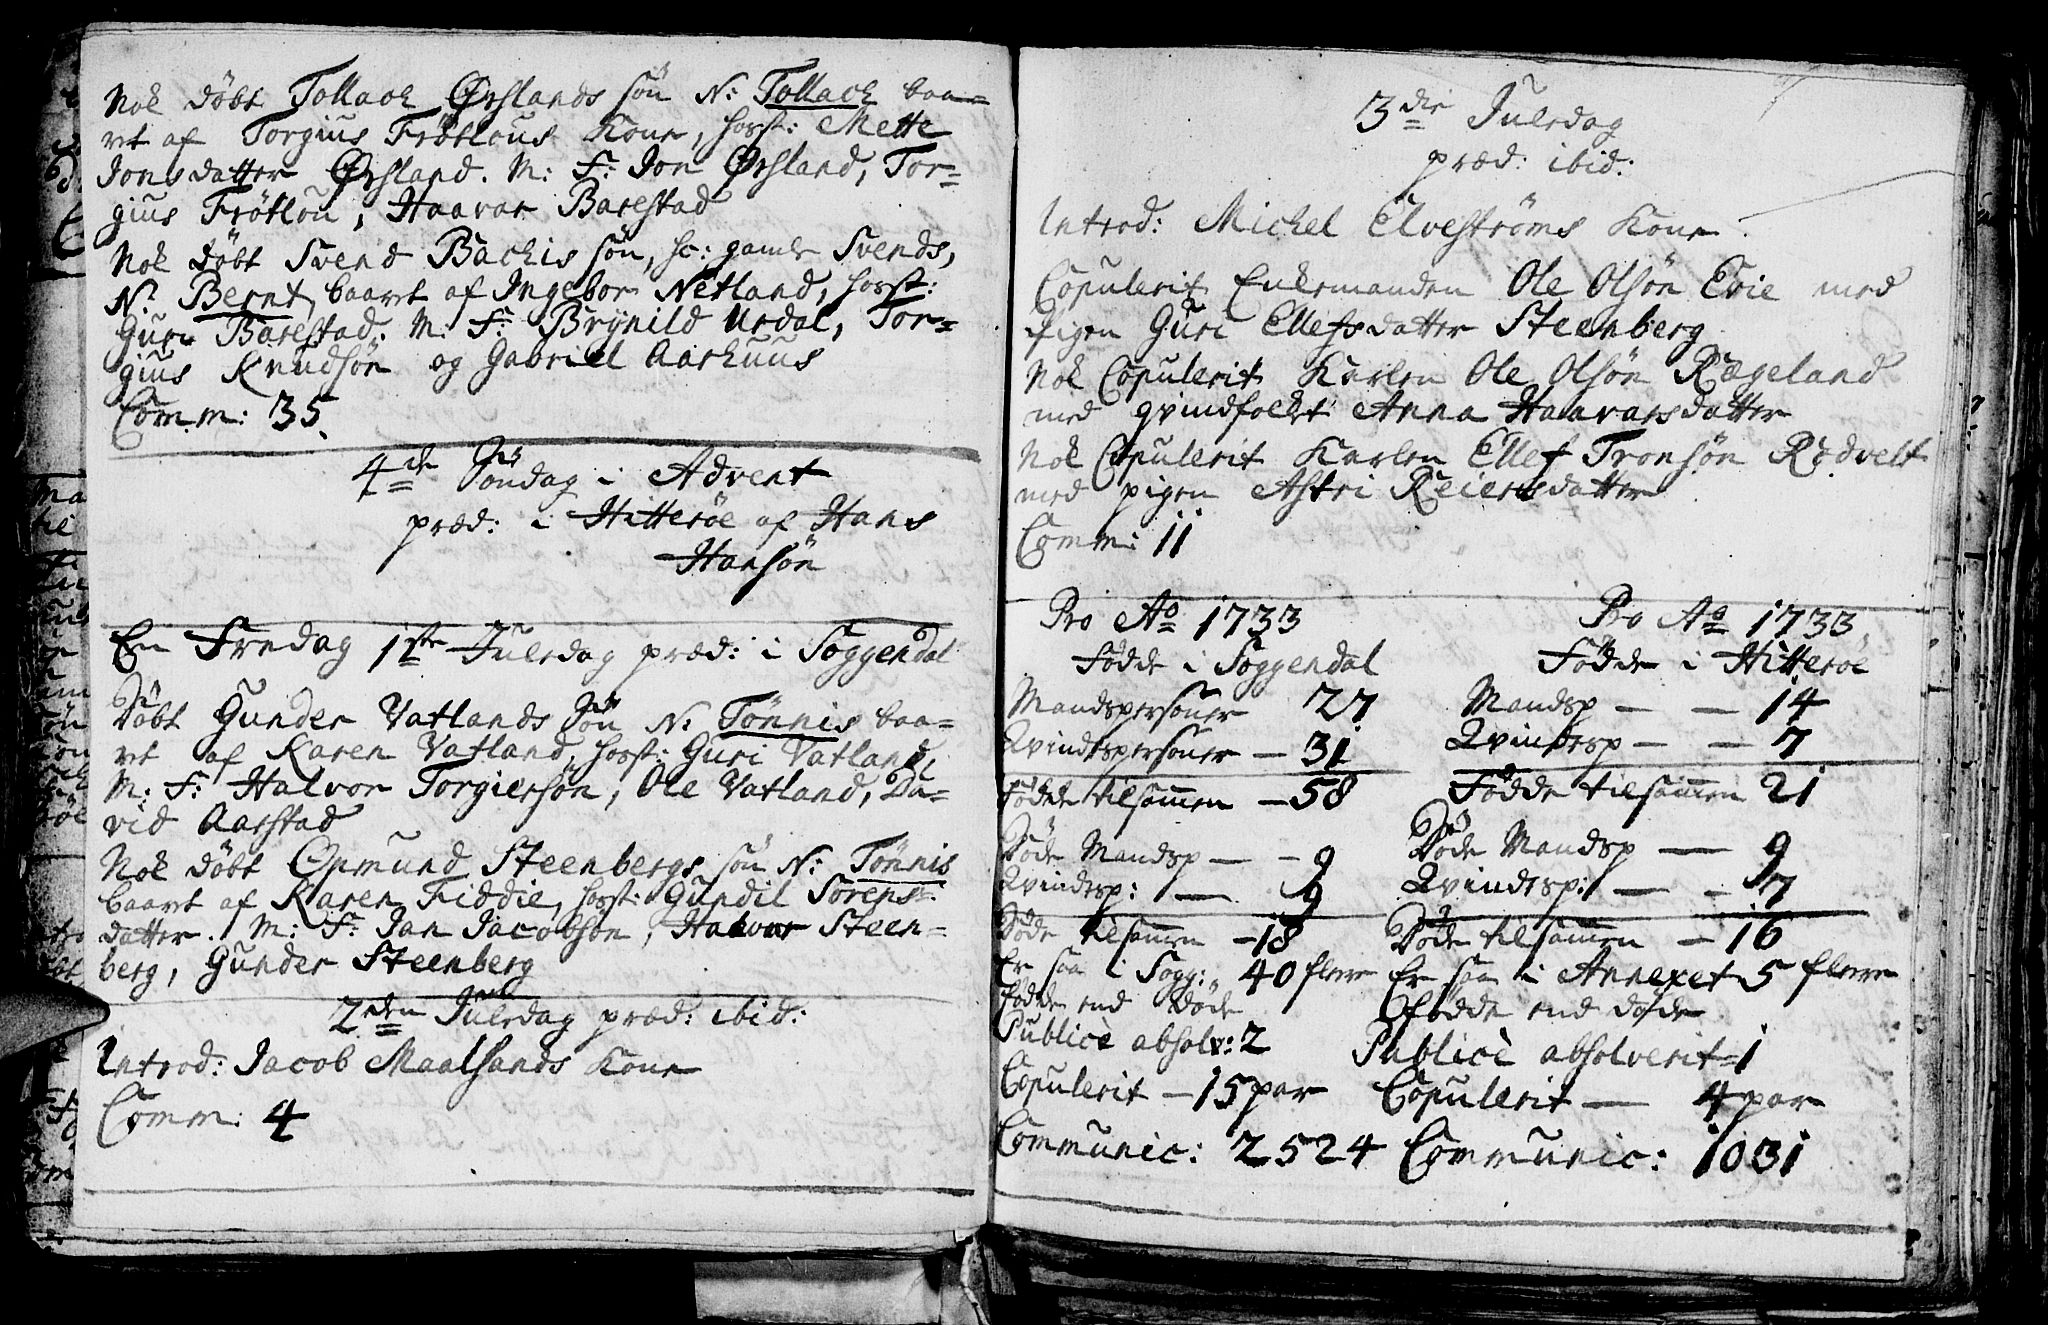 Nok døbt Tollach Ørslands søn N: Tollach baa=
ret af Torgius Frøtlous Kone, hosst: Mette
Jonsdatter Ørsland. M: F: Jon Ørsland, Tor=
gius Frøtlou, Haavar Barestad
Nok døbt Svend Bachis søn, sc: gamle Svends,
N: Bernt, baaret af Ingebor Netland, hosst:
Guri Barestad. M: F: Brÿnild Urdal, Tor=
gius Knudsøn og Gabriel Aarhuus
Comm: 35.
4de Søndag i Advent
præd: i Hitterøe af Hans
Hansøn
En Fredag 1ste Juledag præd: i Soggendal
Døbt Gunder Vatlands Søn N: Tønnis baa=
ret af Karen Vatland, hosst: Guri Vatland,
M: F: Halvor Torgiersøn, Ole Vatland, Da=
vid Aarstad
Nok døbt Opmund Steenbergs søn N: Tønnis
baaret af Karen Fiddie, hosst: Gundil Sørens=
datter. M: F: Jan Jacobsøn, Halvor Steen=
berg, Gunder Steenberg
2den Juledag præd: ibid:
Introd: Jacob Maalsands Kone
Comm: 4
3die Juledag
præd: ibid:
Introd: Michel Elvestrøms Kone
Copulerit Enkemanden Ole Olsøn Evie med
Pigen Guri Ellefsdatter Steenberg
Nok Copulerit Karlen Ole Olsøn Rægeland
med qvindfolket Anna Haavarsdatter
Nok Copulerit Karlen Ellef Tronsøn Rødvelt
med pigen Astri Reiersdatter
Comm: 11
Pro Ao 1733
Fødde i Soggendal
Mandspersoner 27
Qvindespersoner — 31
Fødde tilsammen — 58
Døde Mandsp — - 9
Qvindesp: — 9
Døde tilsammen — 18
Er saa i Sogg: 40 flere
fødde end døde
Publicè absolv: 2
Copulerit — 15 par
Communic: 2524
Pro Ao 1733
Fødde i Hitterøe
Mandsp — — 14
Qvindesp — — 7
Fødde tilsammen 21
Døde Mandsp — 9
Qvindesp: — - 7
Døde tilsammen — 16
Er saa i Annexet 5 flere
fødde end døde
Publicè absolverit = 1
Copulerit — 4 par
Communic: 1031